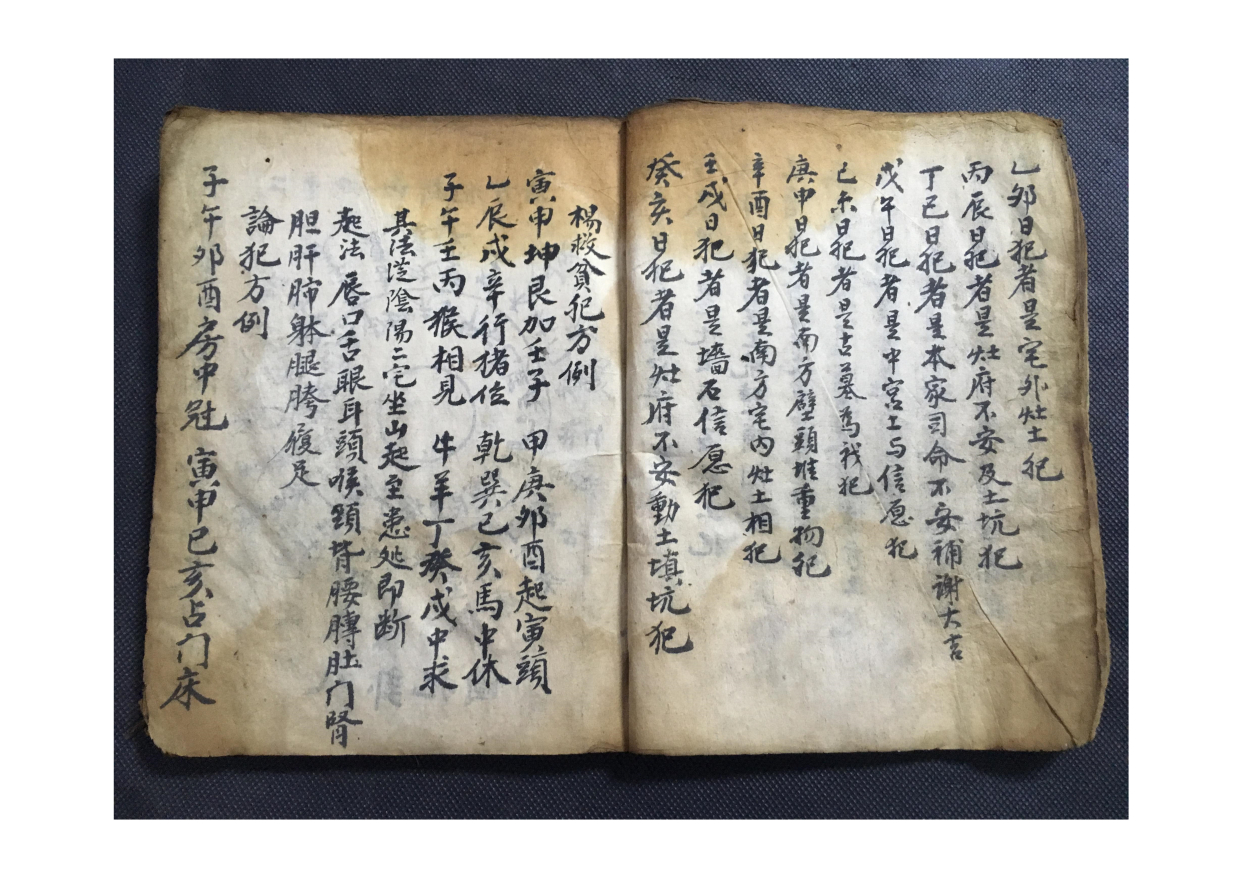 乙夘日犯者是宅外灶土犯
丙辰日犯者是灶府不安及土坑犯
丁巳日犯者是本家司命不安補謝大吉
戊午日犯者是中宮土与信愿犯
己未日犯者是古墓為我犯
庚申日犯者是南方壁頭堆重物犯
辛酉日犯者是南方宅内灶土相犯
壬戍日犯者是墻石信愿犯
癸亥日犯者是灶府不安動土填坑犯
楊救貧犯方例
寅申坤艮加壬子 甲庚夘酉起寅頭
乙辰戍辛行猪位 乾巽巳亥馬中休
子午壬丙猴相見 牛羊丁癸戍中求
其法從陰陽二宅坐山起至患处即断
起法 唇口舌眼耳頭喉頸背腰膊肚门腎
胆肝肺躰腿胯腹足
論犯方例
子午夘酉房中 寅申巳亥占门床